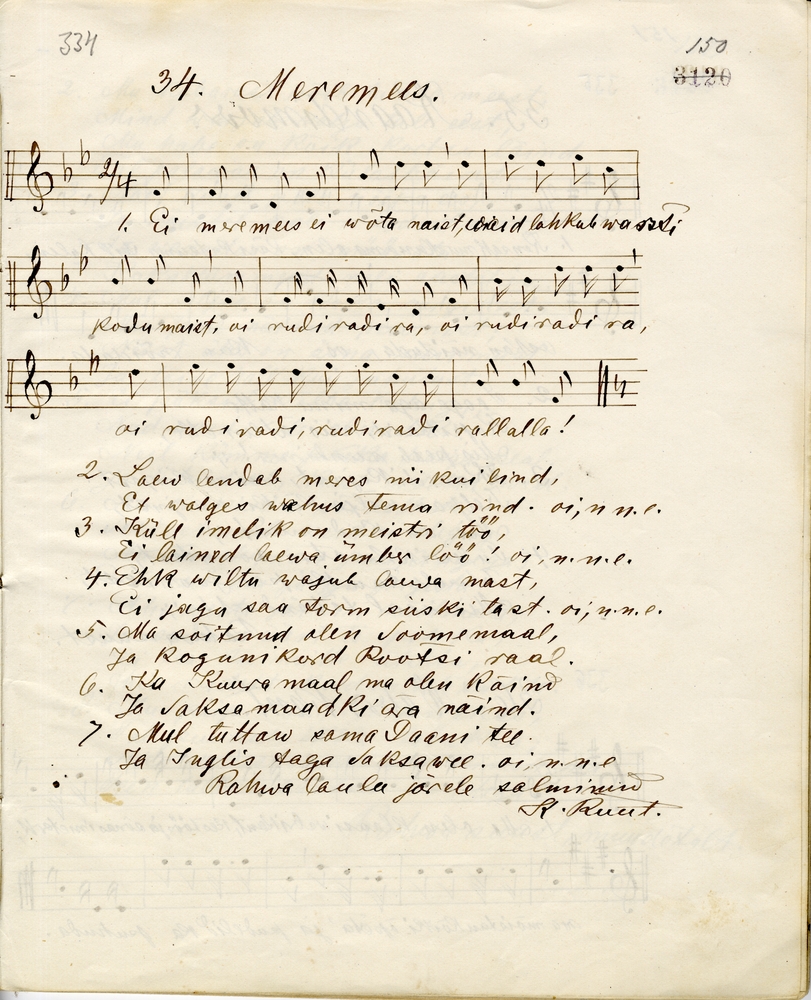 334
150
3120
34. Meremees.
2/4
1. Ei meremees ei wõta naist, weid lahkub warsti
kodumaist, oi rudiradi ra, oi rudiradi ra,
oi rudiradi, rudiradi rallalla!
2. Laew lendab meres nii kui lind,
Et walges wahus tema rind. oi, n.n.e.
3. Küll imelik on meistri töö,
Ei lained laewa ümber löö! oi, n.n.e.
4. Ehk wiltu wajub laewa mast,
Ei jagu saa torm siiski tast. oi, n.n.e.
5. Ma sõitnud olen Soomemaal,
Ja kogunikord Rootsi raal.
6. Ka Kuuramaal ma olen käind
Ja Saksamaadki ära näind.
7. Mul tuttaw sama Daani tee
Ja Inglis taga Saksawee. oi, n.n.e
Rahwa laulu järele salminud
K. Ruut.